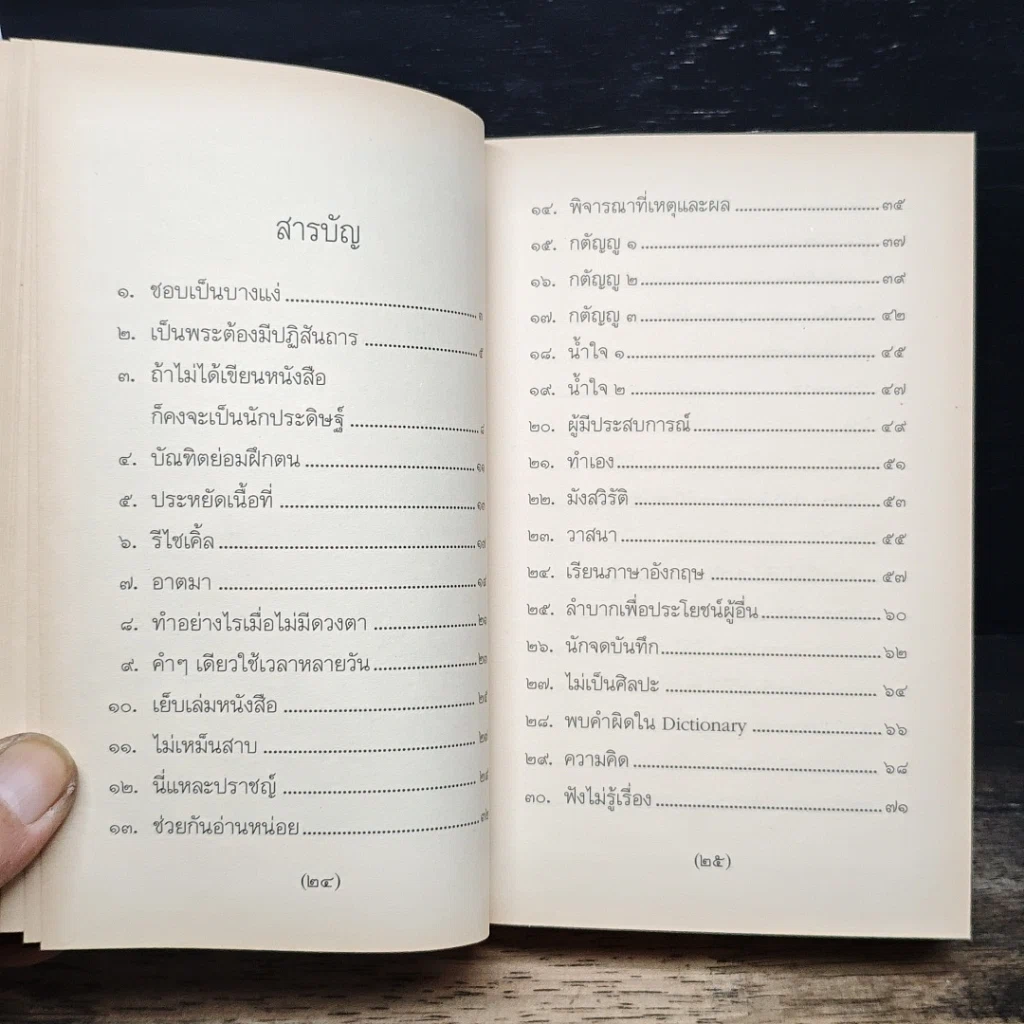 สารบัญ
๑. ชอบเป็นบางแง่ ........ ๑
๒. เป็นพระต้องมีปฏิสันถาร ........ ๕
๓. ถ้าไม่ได้เขียนหนังสือ
ก็คงจะเป็นนักประดิษฐ์ ........ ๘
๔. บัณฑิตย่อมฝึกตน ........ ๑๑
๕. ประหยัดเนื้อที่ ........
๖. รีไซเคิ้ล ........
๗. อาตมา ........
๘. ทำอย่างไรเมื่อไม่มีดวงตา ........
๙. คำๆ เดียวใช้เวลาหลายวัน ........
๑๐. เย็บเล่มหนังสือ ........
๑๑. ไม่เหม็นสาบ ........
๑๒. นี่แหละปราชญ์ ........
๑๓. ช่วยกันอ่านหน่อย ........
(๒๔)
๑๔. พิจารณาที่เหตุและผล ........ ๓๕
๑๕. กตัญญู ๑ ........ ๓๗
๑๖. กตัญญู ๒ ........ ๓๙
๑๗. กตัญญู ๓ ........ ๔๒
๑๘. น้ำใจ ๑ ........ ๔๕
๑๙. น้ำใจ ๒ ........ ๔๗
๒๐. ผู้มีประสบการณ์ ........ ๔๙
๒๑. ทำเอง ........ ๕๑
๒๒. มังสวิรัติ ........ ๕๓
๒๓. วาสนา ........ ๕๕
๒๔. เรียนภาษาอังกฤษ ........ ๕๗
๒๕. ลำบากเพื่อประโยชน์ผู้อื่น ........ ๖๐
๒๖. นักจดบันทึก ........ ๖๒
๒๗. ไม่เป็นศิลปะ ........ ๖๔
๒๘. พบคำผิดใน Dictionary ........ ๖๖
๒๙. ความคิด ........ ๖๘
๓๐. ฟังไม่รู้เรื่อง ........ ๗๑
(๒๕)